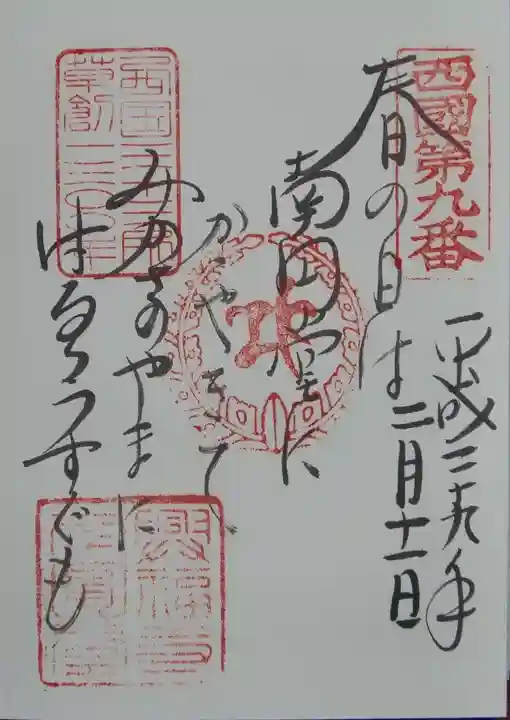 西國第九番
平成二十九年
二月十一日
春の日は
南円堂に
かゞやきて
みかさのやまに
はるゝうすぐも
西国三十三所
草創一三〇〇年
興福寺